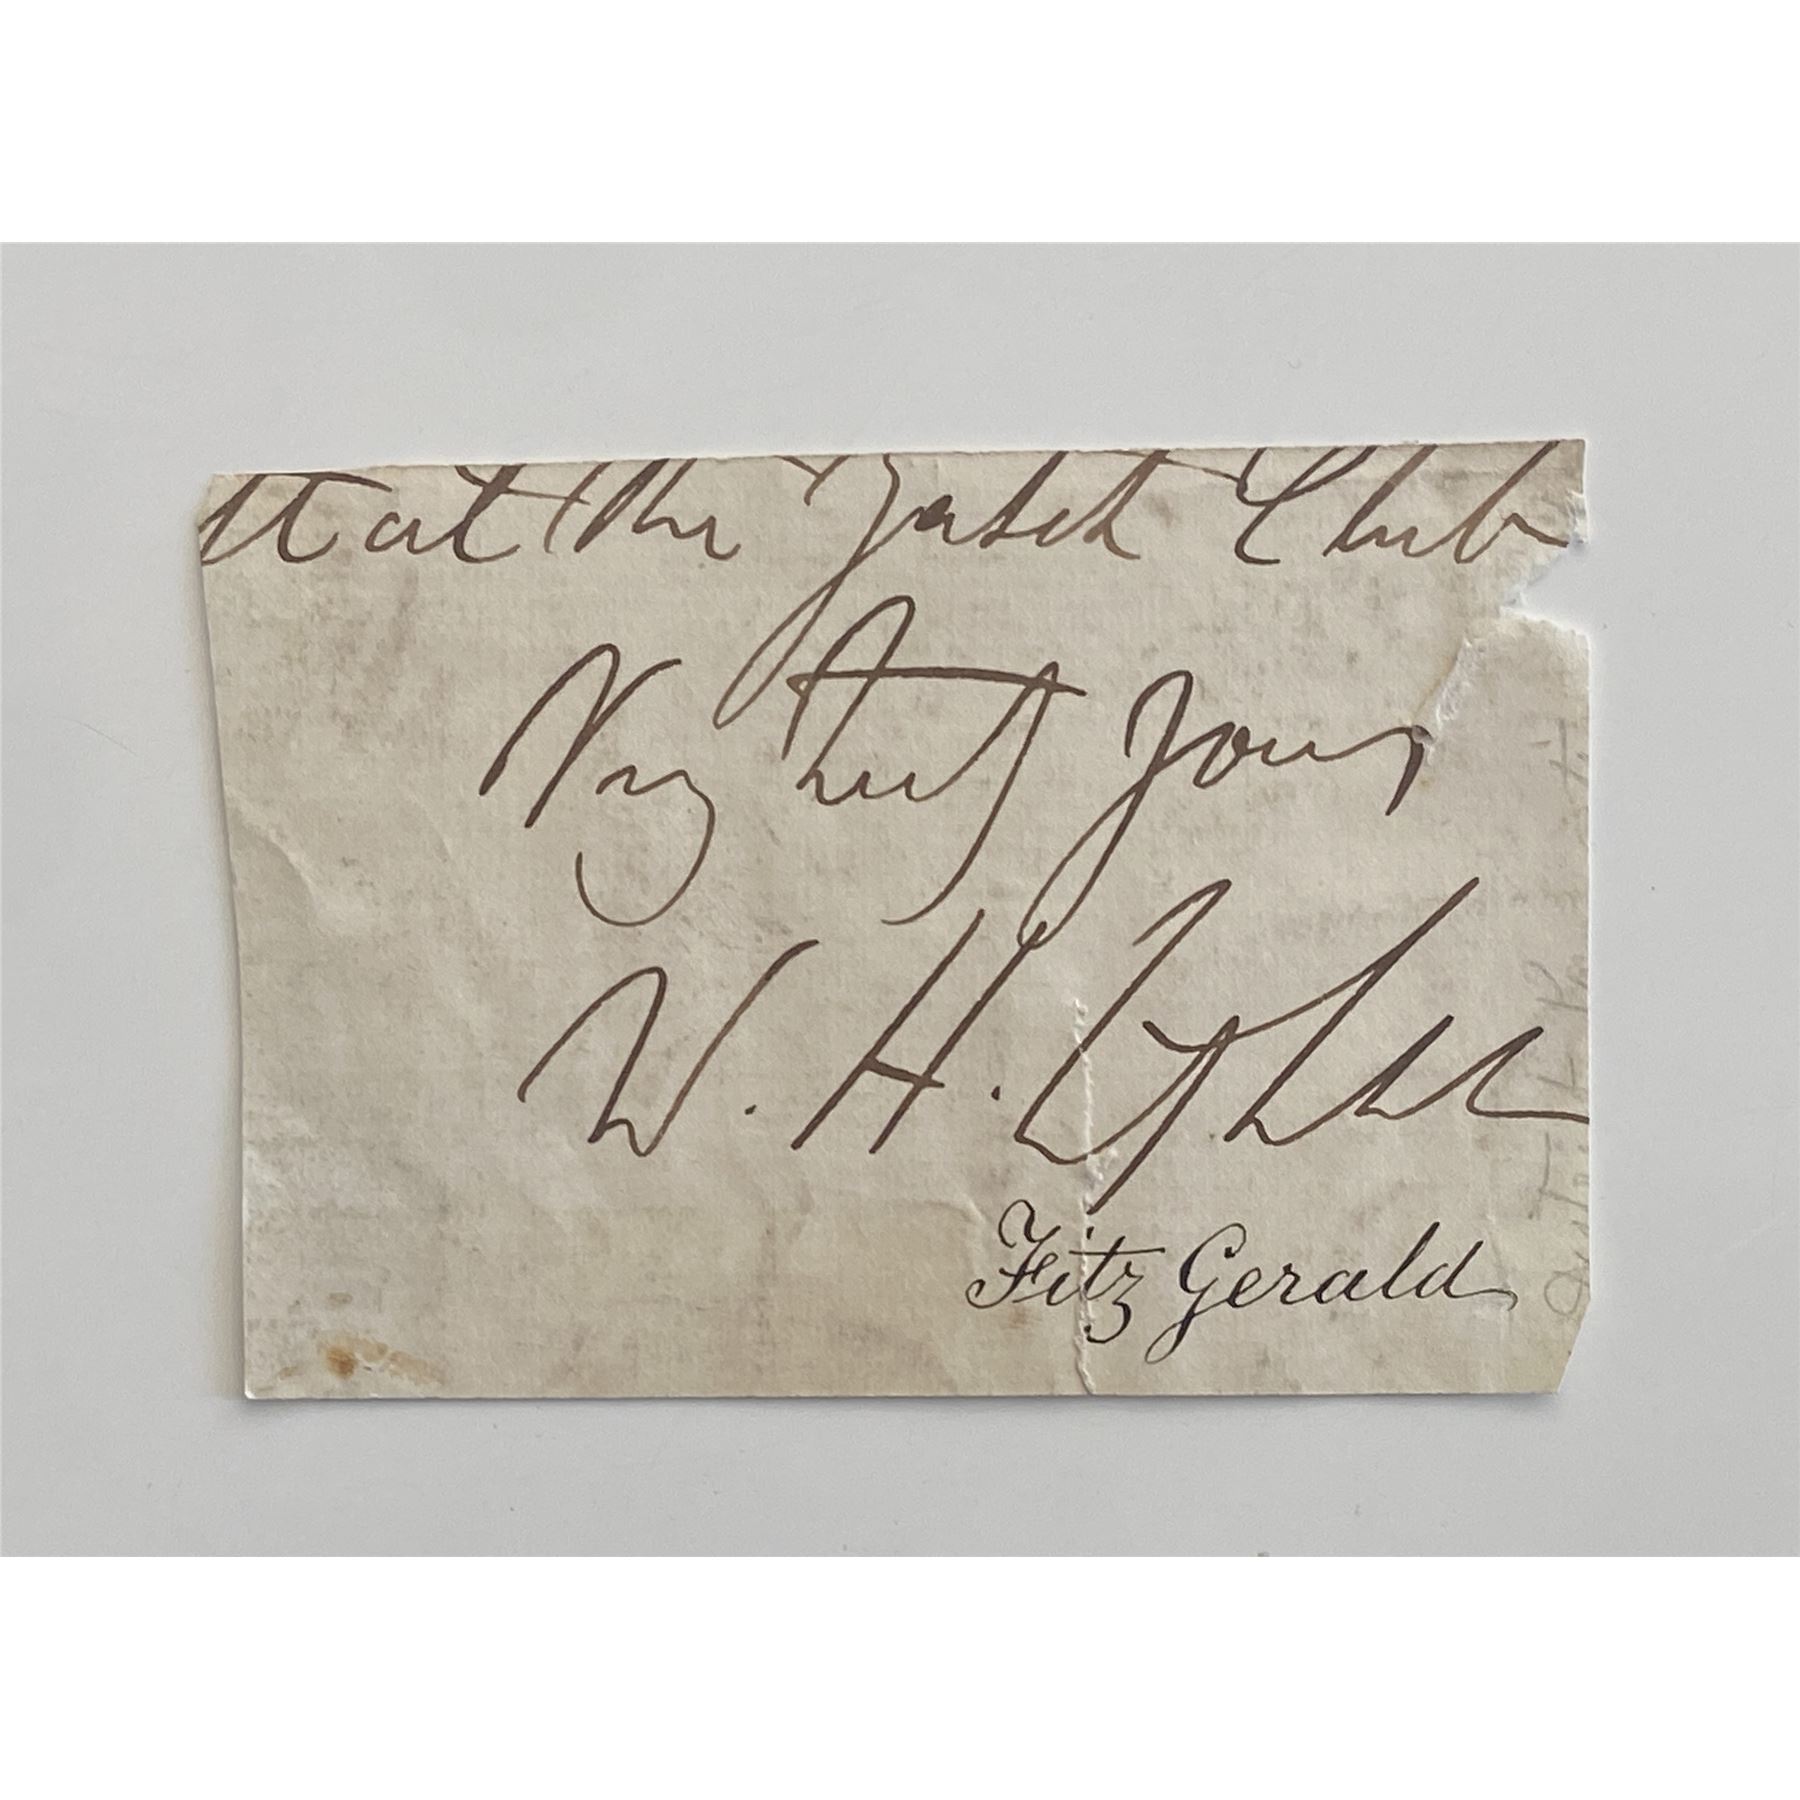 at the Yacht Club
Very truly yours
W. H.
Fitz Gerald